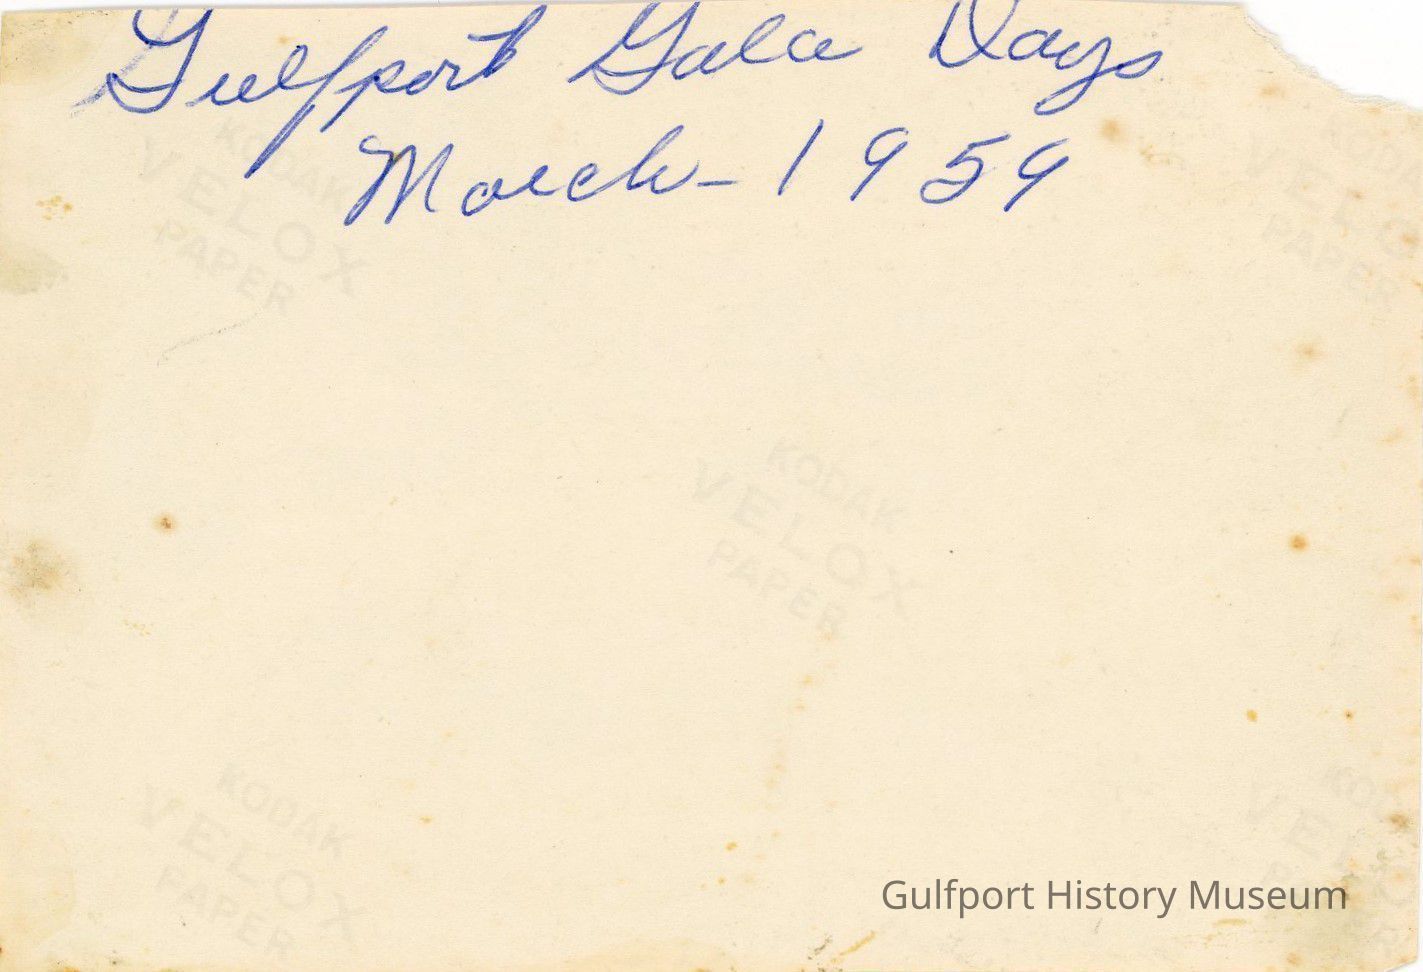 Gulfport Gala Days
March - 1959
KODAK
VELOX
PAPER
VELO
PAPER
KODAK
VELOX
PAPER
KODAK
VELOX
PAPER
Gulfport History Museum